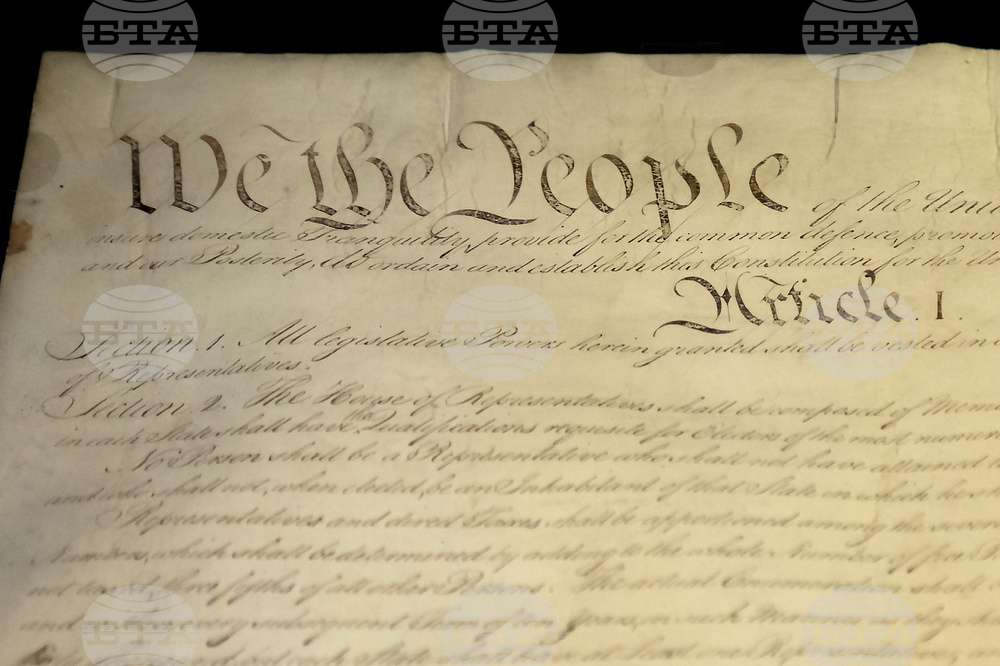 БТА БТА БТА
We the People of the Uni
insure domestic Tranquility, provide for the common defence, promo
and our Posterity, do ordain and establish this Constitution for the Un
Article. I.
Section. 1. All legislative Powers herein granted shall be vested in
of Representatives.
Section. 2. The House of Representatives shall be composed of Mem
in each State shall have the Qualifications requisite for Electors of the most numer
No Person shall be a Representative who shall not have attained
and who shall not, when elected, be an Inhabitant of that State in which he sh
Representatives and direct Taxes shall be apportioned among the sever
Numbers, which shall be determined by adding to the whole Number of free
not taxed, three fifths of all other Persons. The actual Enumeration shall
and every subsequent Term of ten Years, in such Manner
each State shall have at Least one